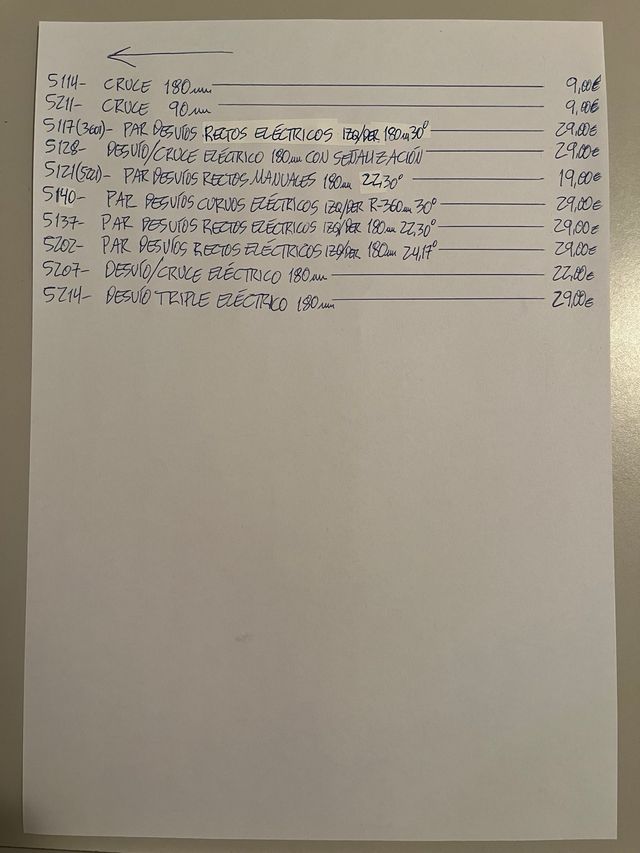 5114- CRUCE 180mm 9,00€
5211- CRUCE 90mm 9,00€
5117(3601)- PAR DESVÍOS RECTOS ELÉCTRICOS IZQ/DER 180mm 30º 29,00€
5128- DESVÍO/CRUCE ELÉCTRICO 180mm CON SEÑALIZACIÓN 29,00€
5121(521)- PAR DESVÍOS RECTOS MANUALES 180mm 22,30º 19,00€
5140- PAR DESVÍOS CURVOS ELÉCTRICOS IZQ/DER R-360mm 30º 29,00€
5137- PAR DESVÍOS RECTOS ELÉCTRICOS IZQ/DER 180mm 22,30º 29,00€
5202- PAR DESVÍOS RECTOS ELÉCTRICOS IZQ/DER 180mm 24,17º 29,00€
5207- DESVÍO/CRUCE ELÉCTRICO 180mm 22,00€
5214- DESVÍO TRIPLE ELÉCTRICO 180mm 29,00€